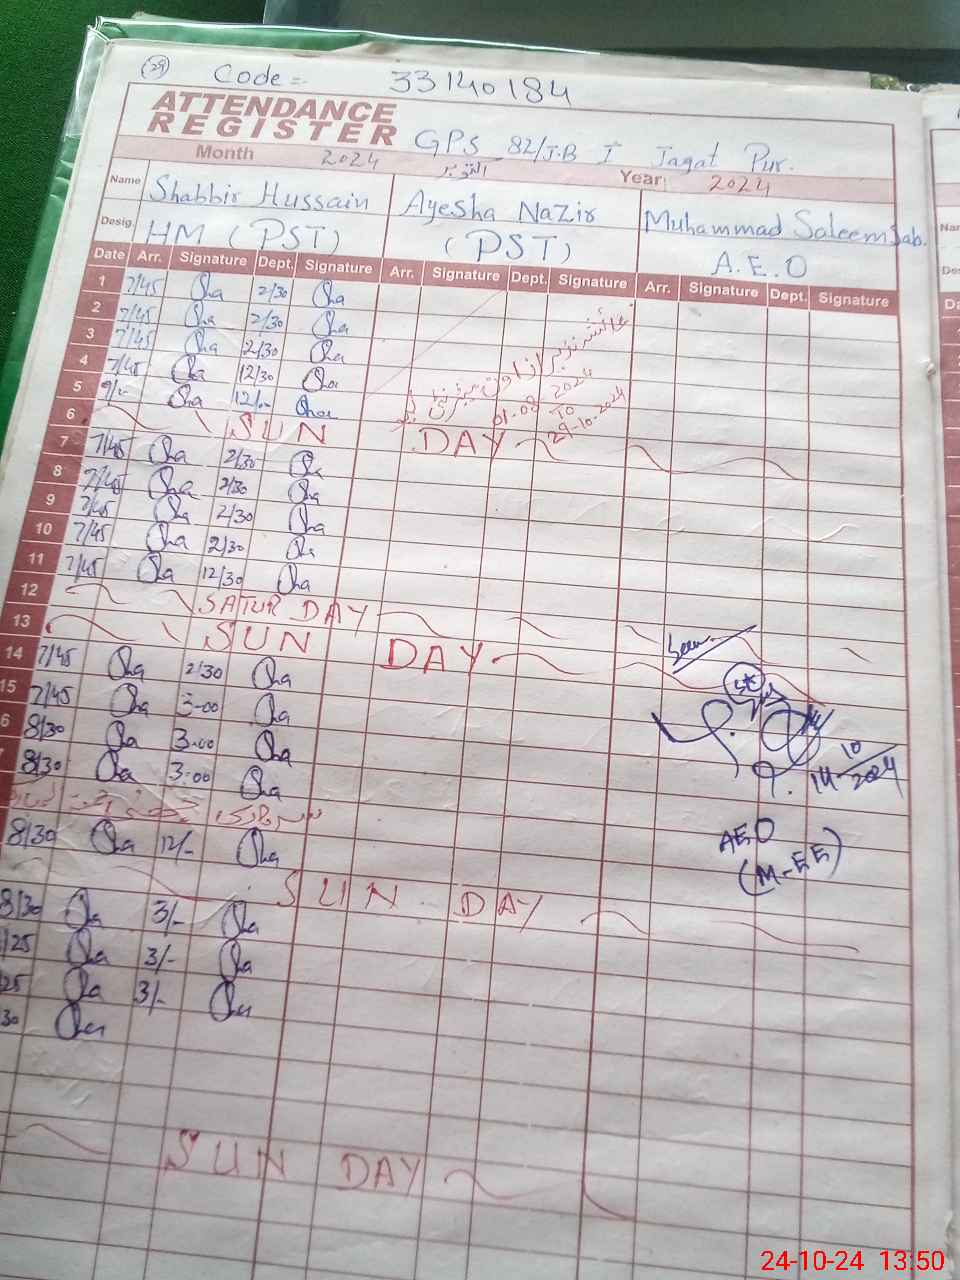 29 Code = 33140184
ATTENDANCE
REGISTER GPS 82/J.B I Jagat Pur.
Month 2024 اکتوبر Year: 2024
Name Shabbir Hussain Ayesha Nazir Muhammad Saleem Sab.
Desig. HM (PST) (PST) A.E.O
Date Arr. Signature Dept. Signature Arr. Signature Dept. Signature Arr. Signature Dept. Signature
1 7/45 Sha 2/30 Sha
2 7/45 Sha 2/30 Sha
3 7/45 Sha 2/30 Sha
4 7/45 Sha 12/30 Sha
5 9/- Sha 12/- Sha
01-08-2024
TO
29-10-2024
6 SUN DAY
7 7/45 Sha 2/30 Sha
8 7/45 Sha 2/30 Sha
9 7/45 Sha 2/30 Sha
10 7/45 Sha 2/30 Sha
11 7/45 Sha 12/30 Sha
12 SATUR DAY
13 SUN DAY
14 7/45 Sha 2/30 Sha
Seen
15 7/45 Sha 3-00 Sha
6 8/30 Sha 3-00 Sha
7 8/30 Sha 3:00 Sha
14-10/2024
8/30 Sha 12/- Sha
AEO
(M-EE)
SUN DAY
8/30 Sha 3/- Sha
/25 Sha 3/- Sha
25 Sha 3/- Sha
30 Sha
SUN DAY
24-10-24 13:50